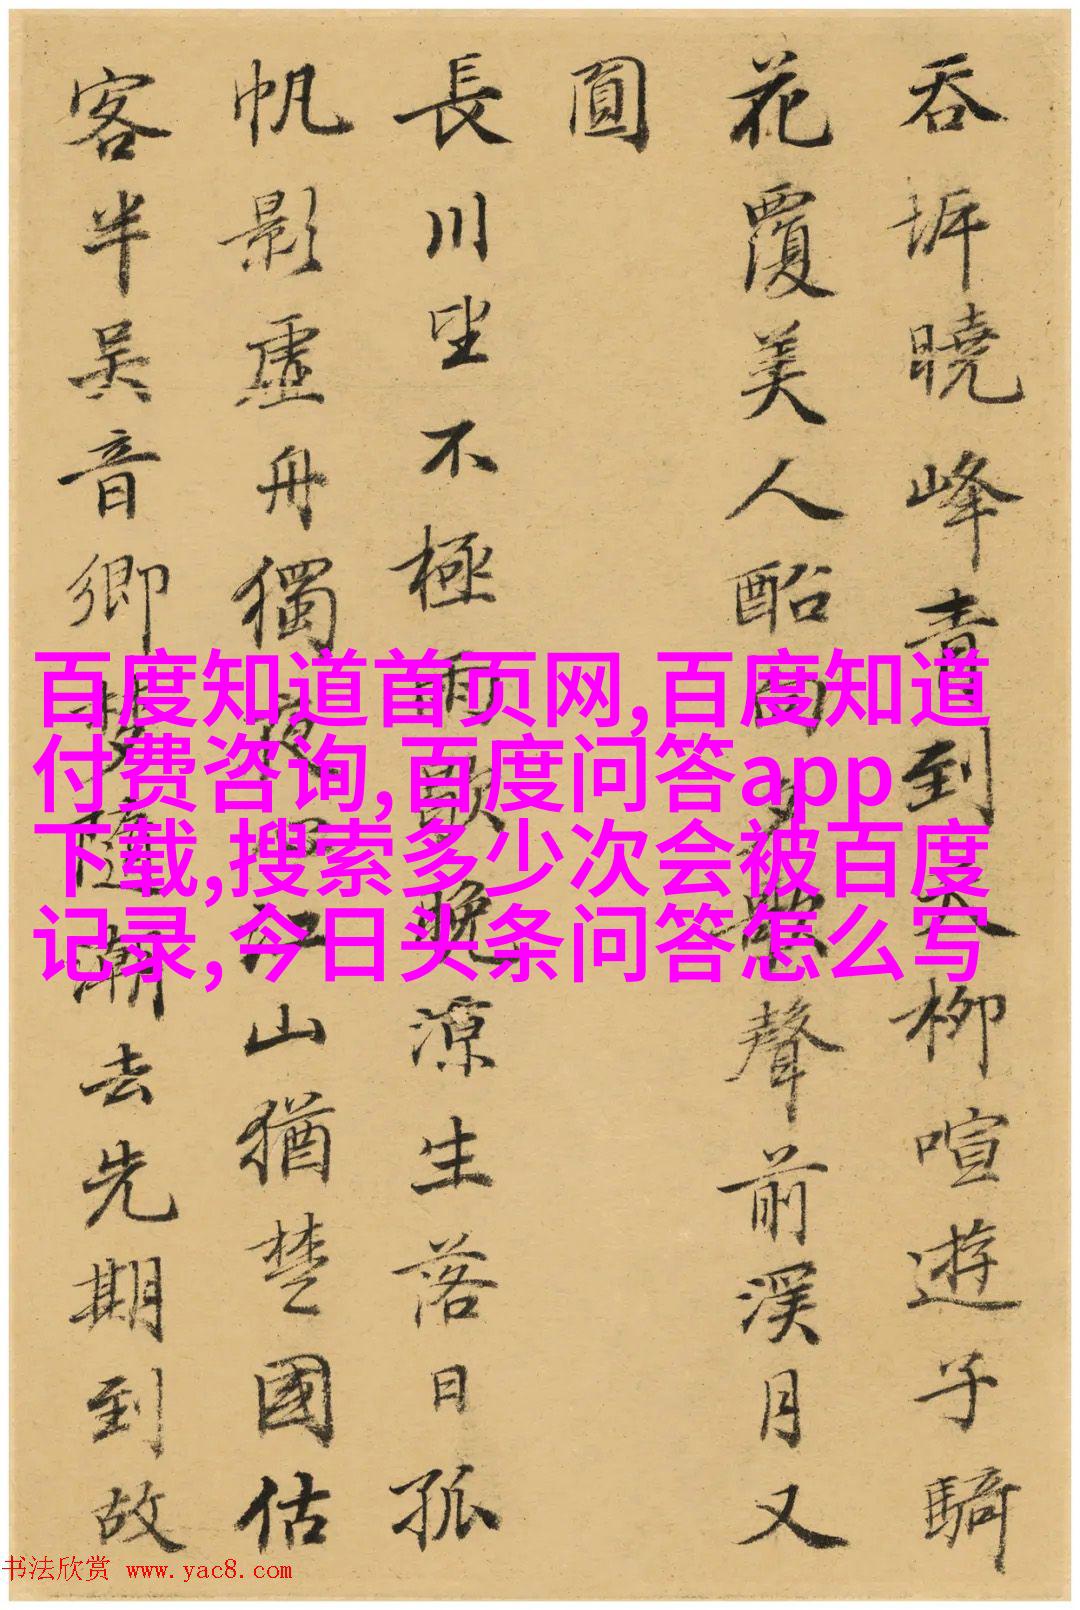 吞坼曉峰青到天柳喧遊子騎
花覆美人船向夕歌聲前溪月又
圓
長川坐不極雨歇晚涼生落日孤
帆影虛舟獨夜心江山猶楚國估
客半吳音鄉夢隨潮去先期到故
百度知道首页网,百度知道
付费咨询,百度问答app
下载,搜索多少次会被百度
记录,今日头条问答怎么写
书法欣赏 www.yac8.com